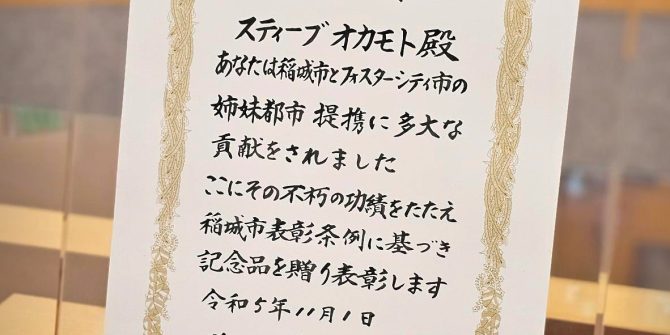 スティーブ オカモト殿
あなたは稲城市とフォスターシティ市の
姉妹都市 提携に多大な
貢献をされました
ここにその不朽の功績をたたえ
稲城市表彰条例に基づき
記念品を贈り表彰します
令和5年11月1日